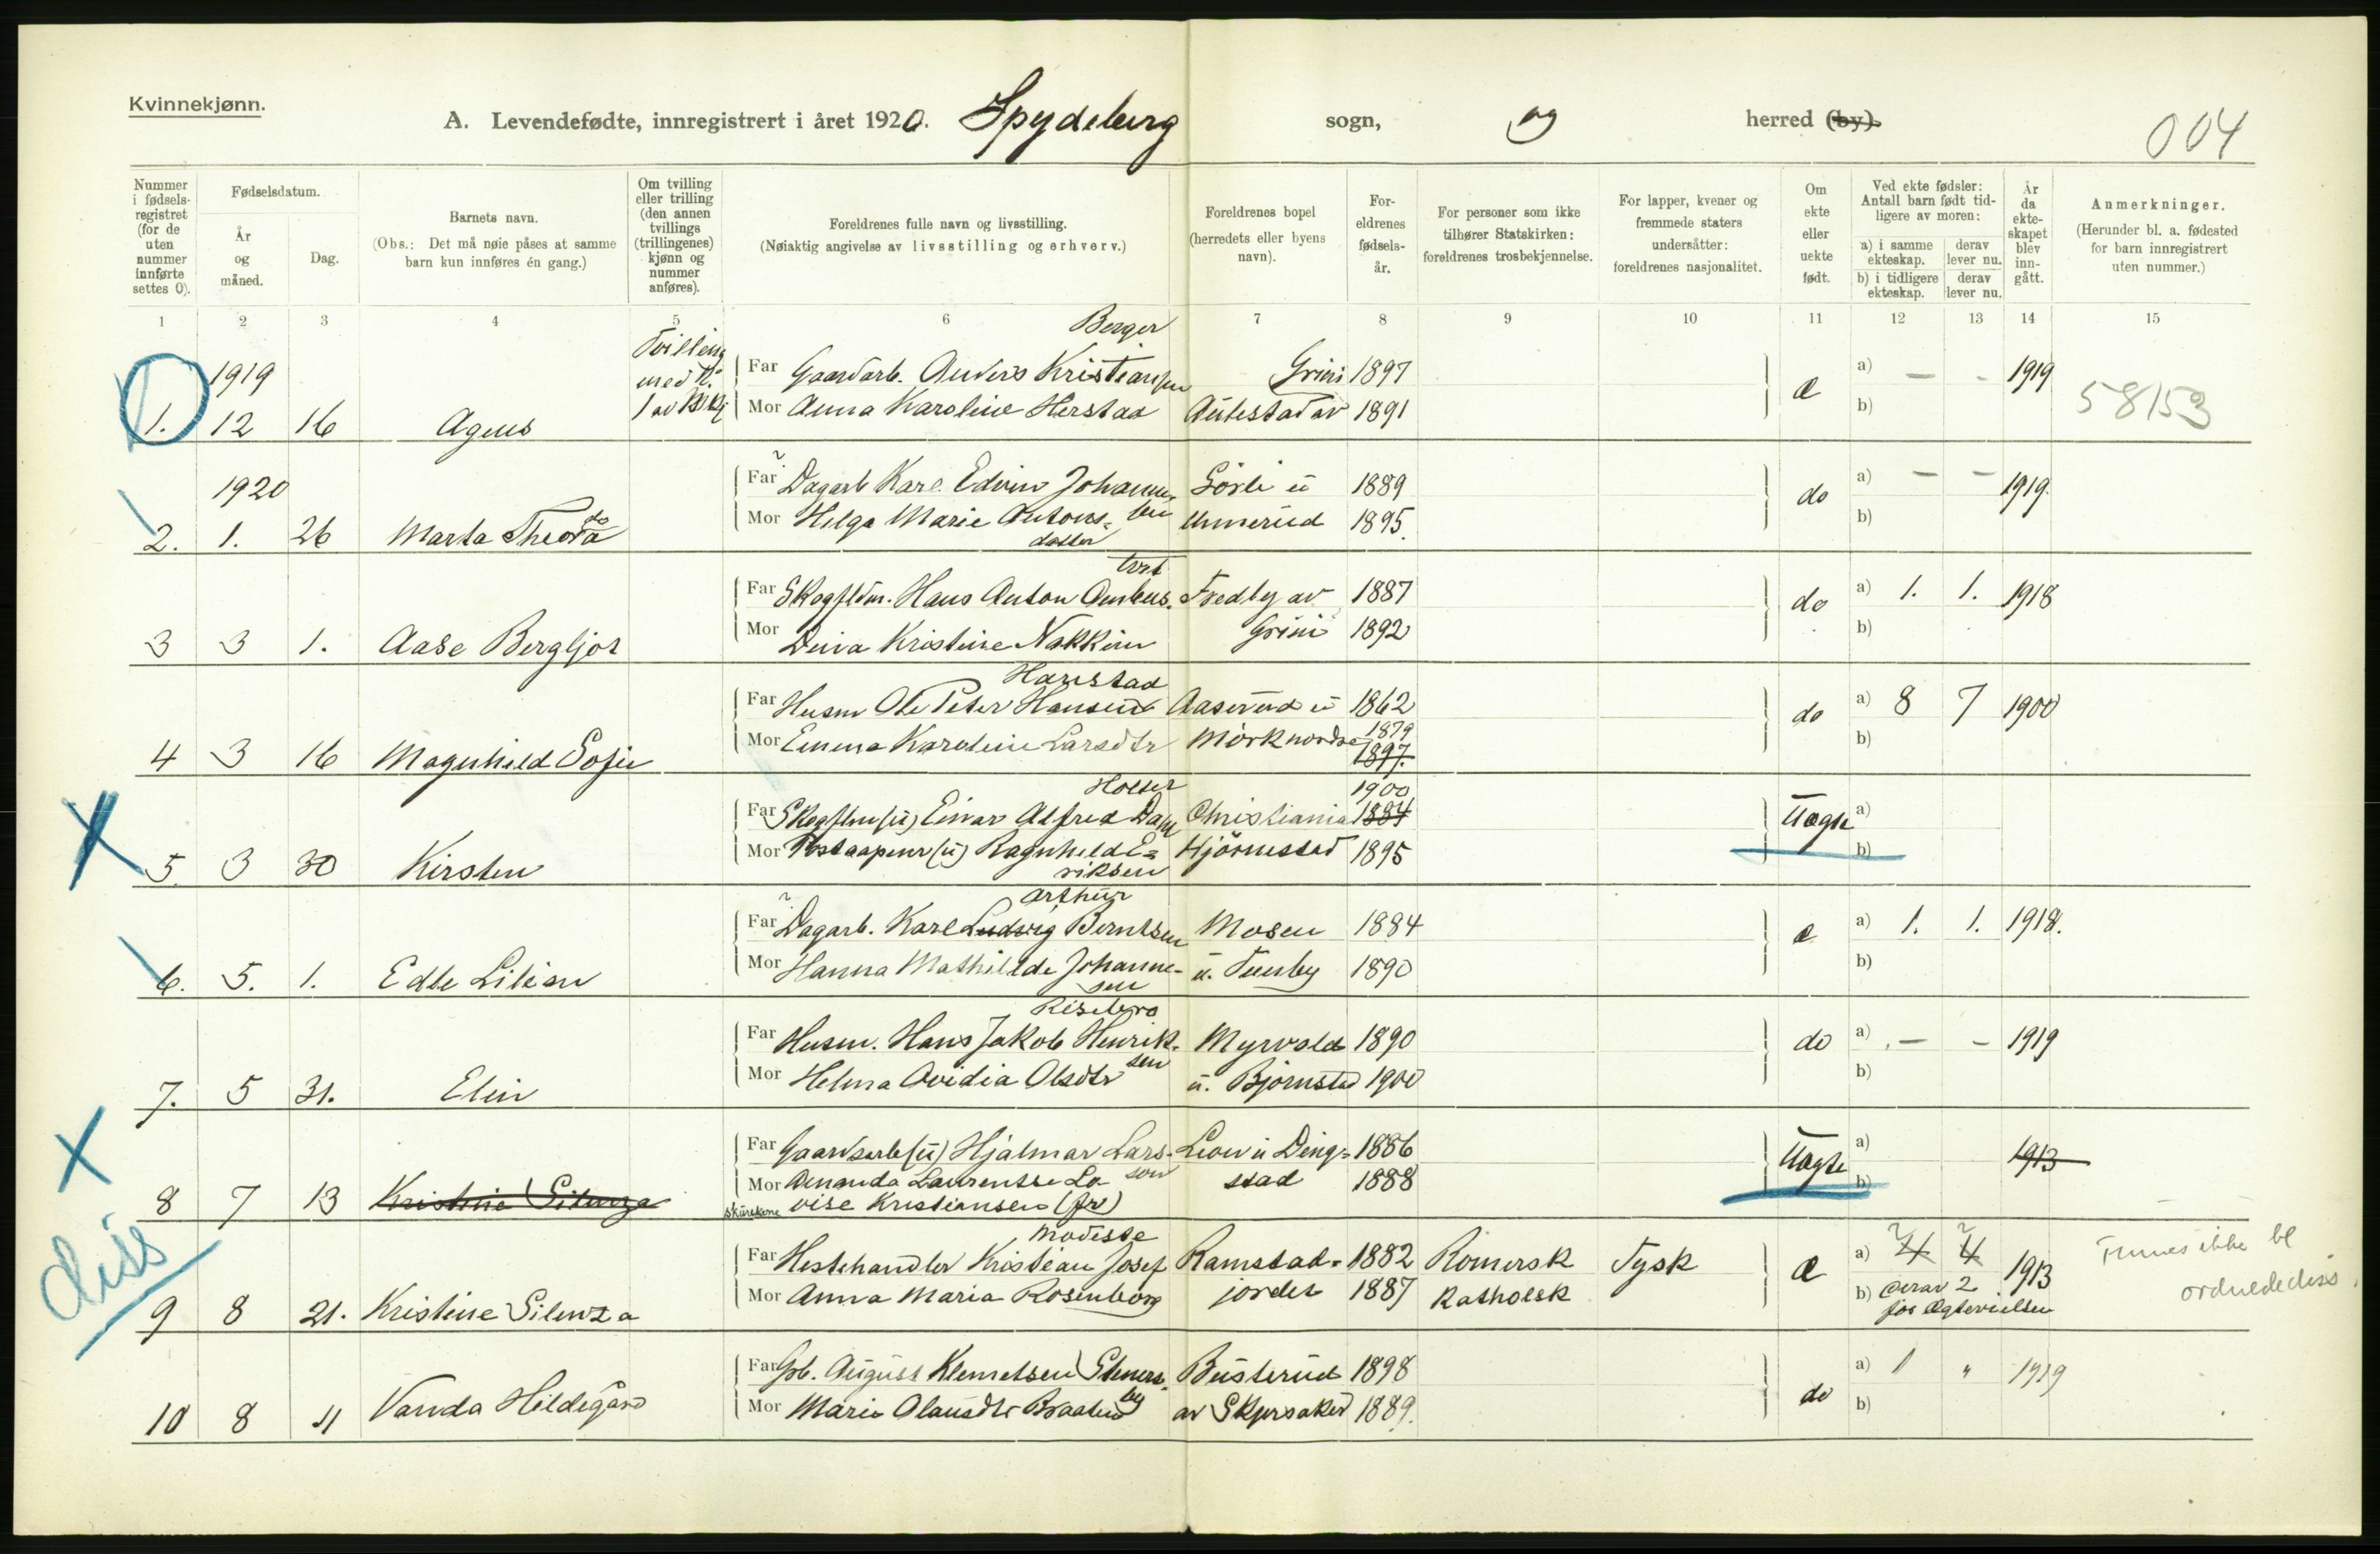 Kvinnekjønn.
A. Levendefødte, innregistrert i året 1920. Spydeberg sogn, og herred (by).
004
Nummer i fødsels-registret (for de uten nummer innførte settes 0).
Fødselsdatum.
År og måned.
Dag.
Barnets navn.
(Obs.: Det må nøie påses at samme barn kun innføres én gang.)
Om tvilling eller trilling (den annen tvillings (trillingenes) kjønn og nummer anføres).
Foreldrenes fulle navn og livsstilling.
(Nøiaktig angivelse av livsstilling og erhverv.)
Foreldrenes bopel (herredets eller byens navn).
For-eldrenes fødsels-år.
For personer som ikke tilhører Statskirken: foreldrenes trosbekjennelse.
For lapper, kvener og fremmede staters undersåtter: foreldrenes nasjonalitet.
Om ekte eller uekte født.
Ved ekte fødsler: Antall barn født tid-ligere av moren:
a) i samme ekteskap. derav lever nu.
b) i tidligere ekteskap. derav lever nu.
År da ekte-skapet blev inn-gått.
Anmerkninger.
(Herunder bl. a. fødested for barn innregistrert uten nummer.)
1 2 3 4 5 6 7 8 9 10 11 12 13 14 15
Berger
Tvilling med
1919 Far Gaardarb. Anders Kristiansen Grini 1897 a) — - 1919
1. 12 16 Agnes Mor Anna Karoline Herstad av 1891 Æ b) 58153
1920 Far Dagarb Karl Edvin Johannesen Sörli u 1889 do a) — — 1919
2. 1. 26 Marta Theodora Mor Helga Marie Antonsdatter Unnerud 1895. b)
Tvet
Far Skogflm. Hans Anton Fredby av 1887 do a) 1. 1. 1918
3 3 1. Aase Bergljot Mor Dina Kristine Nakkim Grini 1892 b)
Harstad
Far Husm Ole Peter Hansen Aaserud u 1862 do a) 8 7 1900
4 3 16 Magnhild Sofie Mor Emma Karoline Larsdtr Mörk nordre 1879 1897. b)
Holter 1900
Far Skogflm (u) Einar Alfred Dahl Christiania 1884 Uægte a)
5. 3 30 Kirsten Mor Postaapner (u) Ragnhild Eriksen Hjörnestad 1895 b)
Arthur
Far Dagarb. Karl Ludvig Berntsen Mosen 1884 Æ a) 1. 1. 1918.
6. 5. 1. Edle Lilian Mor Hanna Mathilde Johannesen u. 1890 b)
Risebro
Far Husm. Hans Jakob Henriksen Myrvold 1890 do a) — - 1919
7. 5 31. Elin Mor Helma Ovidia Olsdtr u. Björnstad 1900 b)
Far Gaardsarb (u) Hjalmar Larsson Leow u Dingstad 1886 Uægte a) 1913
8 7 13 Kristine Silenza Mor Amanda Laurentse Lovise Kristiansen (fr) 1888 b)
diss
Modeste
Far Hestehandler Kristian Josef Ramstad- 1882 Romersk Tysk Æ a) 4 4 1913 Finnes ikke bl
9 8 21. Kristine Silenza Mor Anna Maria Rosenborg jordet 1887 Katholsk b) derav 2 før Ægtevielsen ordnede diss.
Far Gb. August Klemetsen Stenersby Busterud 1898 do a) 1 " 1919
10 8 11 Vanda Hildegard Mor Marie Olausdtr Braaten av Skjersaker 1889. b)